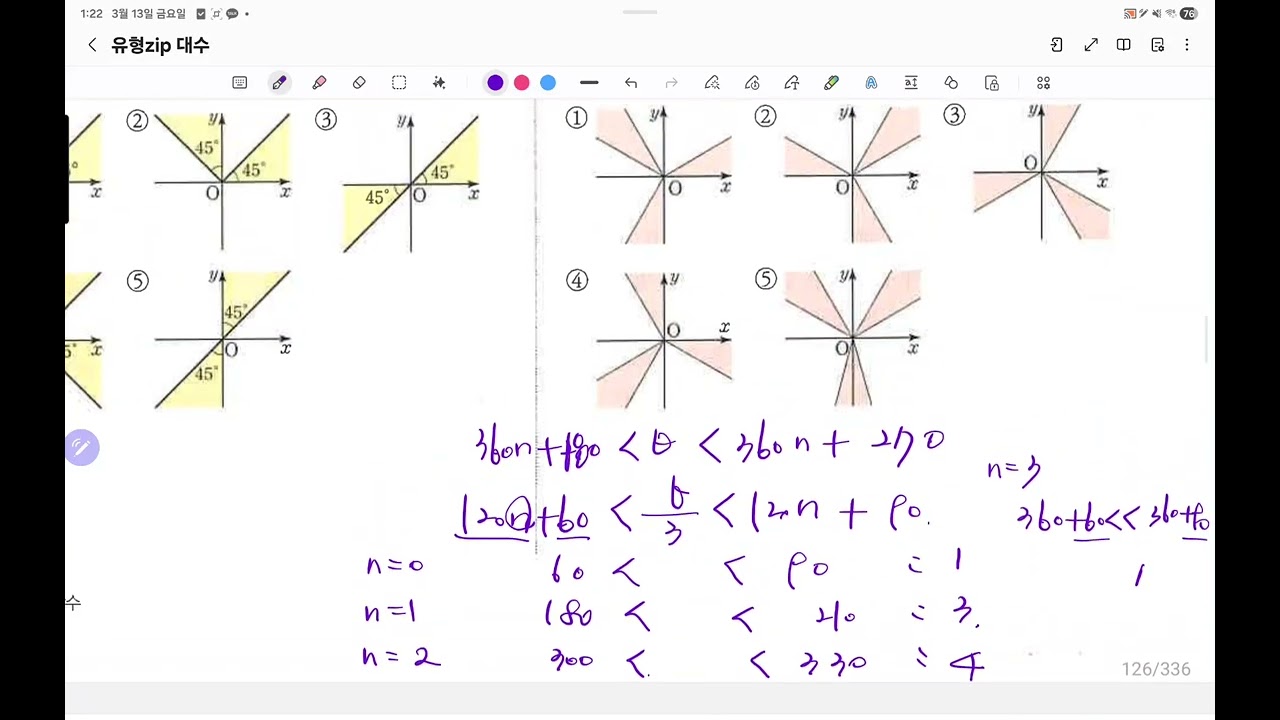 1:22 3월 13일 금요일
76
유형zip 대수
② y 45° 45° O x
③ y 45° 45° O x
① y O x
② y O x
③ y O x
° x
④ y O x
⑤ y O x
⑤ y 45° 45° O x
5° x
360n+180 < θ < 360n + 270
n=3
120n+60 < θ/3 < 120n + 90.
360+60<< 360+90
n=0 60 < < 90 : 1
1
수
n=1 180 < < 210 : 3.
n=2 300 < < 330 : 4
126/336